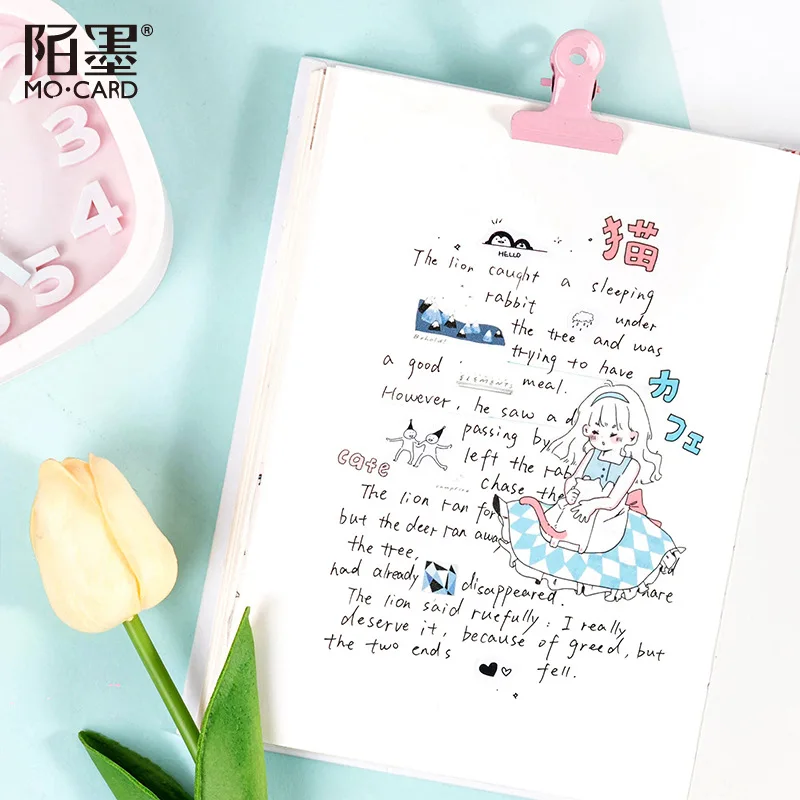 陌墨®
MO·CARD
3
4
5
HELLO
猫
The lion caught a sleeping
rabbit under
the tree and was
trying to have
a good meal.
ELEMENTS
カフェ
However, he saw a d
passing by
left the rab
cafe
chase the
The lion ran for
but the deer ran away
the tree,
had already disappeared.
The lion said ruefully: I really
deserve it, because of greed, but
the two ends fell.